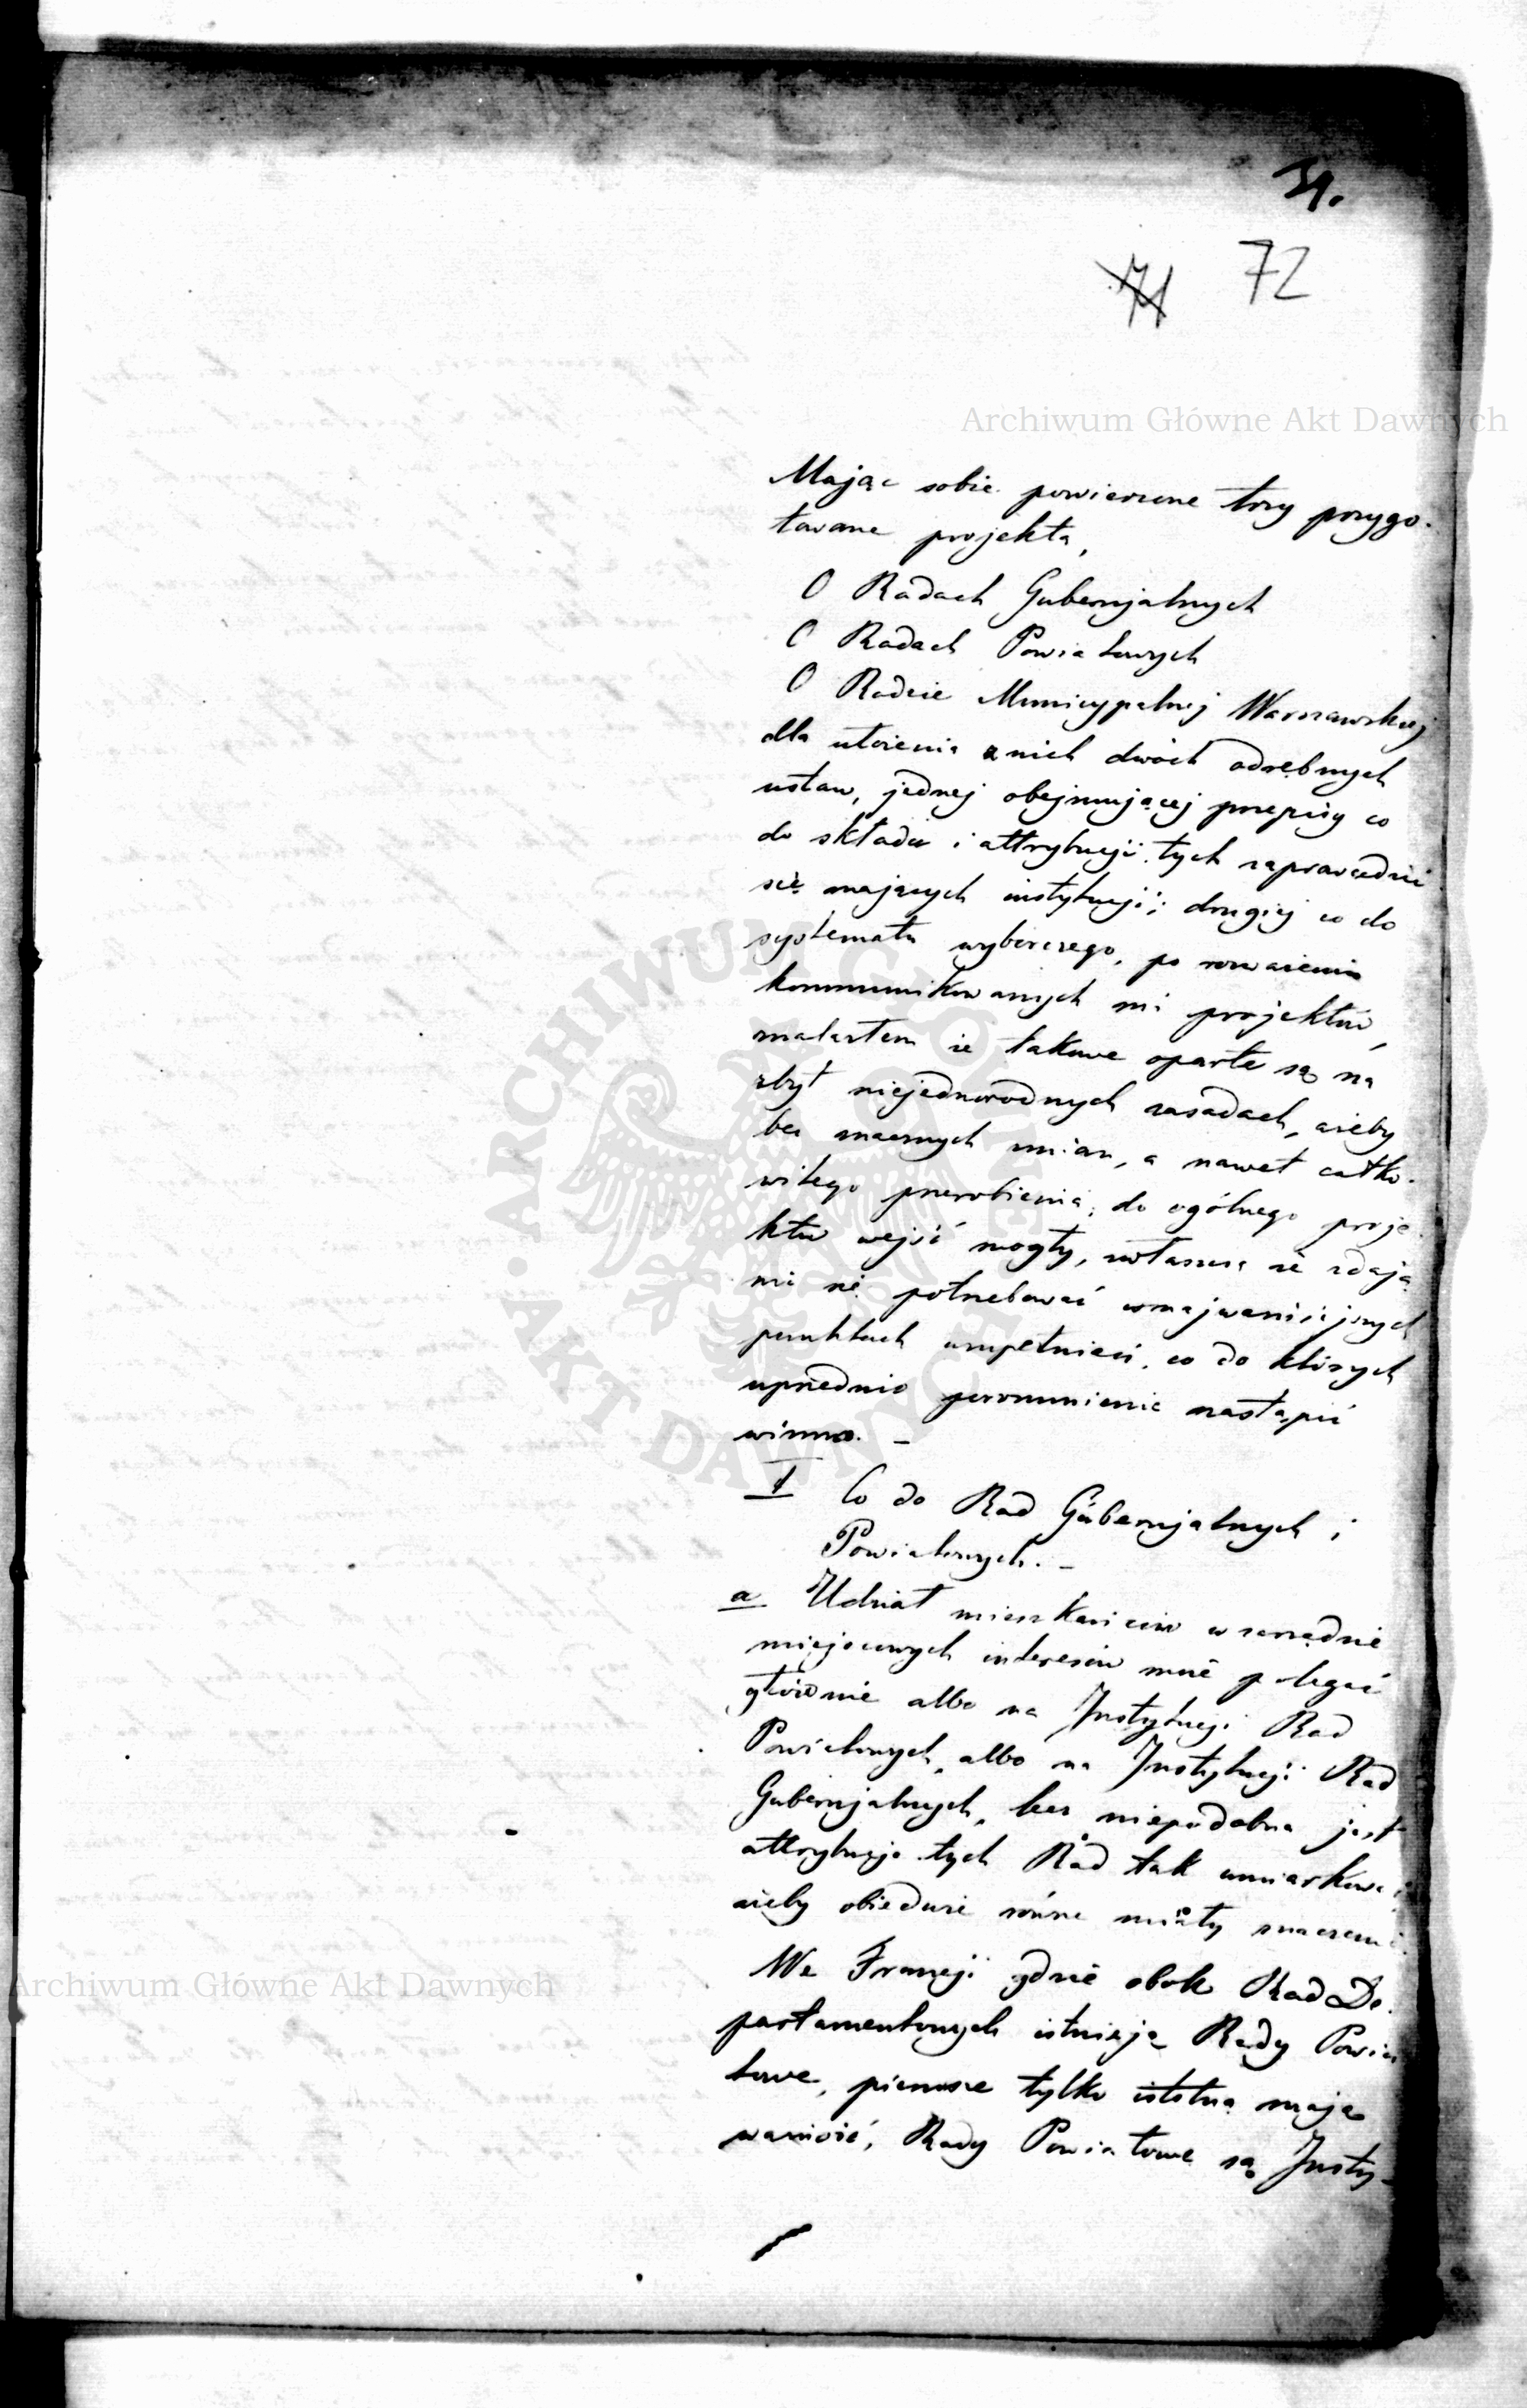 31.
71 72
Archiwum Główne Akt Dawnych
Mając sobie powierzone trzy przygo-
towane projekta,
O Radach Gubernjalnych
O Radach Powiatowych
O Radzie Municypalnej Warszawskiej
dla ułożenia z nich dwóch odrębnych
ustaw, jednej obejmującej przepisy co
do składu i attrybucji tych zaprowadzić
się mających instytucji; drugiej co do
systematu wyborczego, po rozważeniu
kommunikowanych mi projektów,
znalazłem że takowe oparte są na
zbyt niejednorodnych zasadach, ażeby
bez znacznych zmian, a nawet całko-
witego przerobienia, do ogólnego proje-
ktu wejść mogły, zwłaszcza że zdają
mi się potrzebować w najważniejszych
punktach uzupełnień, co do których
uprzednio porozumienie nastąpić
winno. –
I Co do Rad Gubernjalnych i
Powiatowych. –
a Udział mieszkańców w zarządzie
miejscowych interesów może polegać
głównie albo na Instytucji Rad
Powiatowych, albo na Instytucji Rad
Gubernjalnych, lecz niepodobna jest
attrybucje tych Rad tak umiarkować
ażeby obiedwie równe miały znaczenie.
We Francji gdzie obok Rad De-
partamentowych istnieją Rady Powia-
towe, pierwsze tylko istotną mają
ważność, Rady Powiatowe są Insty-
Archiwum Główne Akt Dawnych
ARCHIWUM GŁÓWNE AKT DAWNYCH